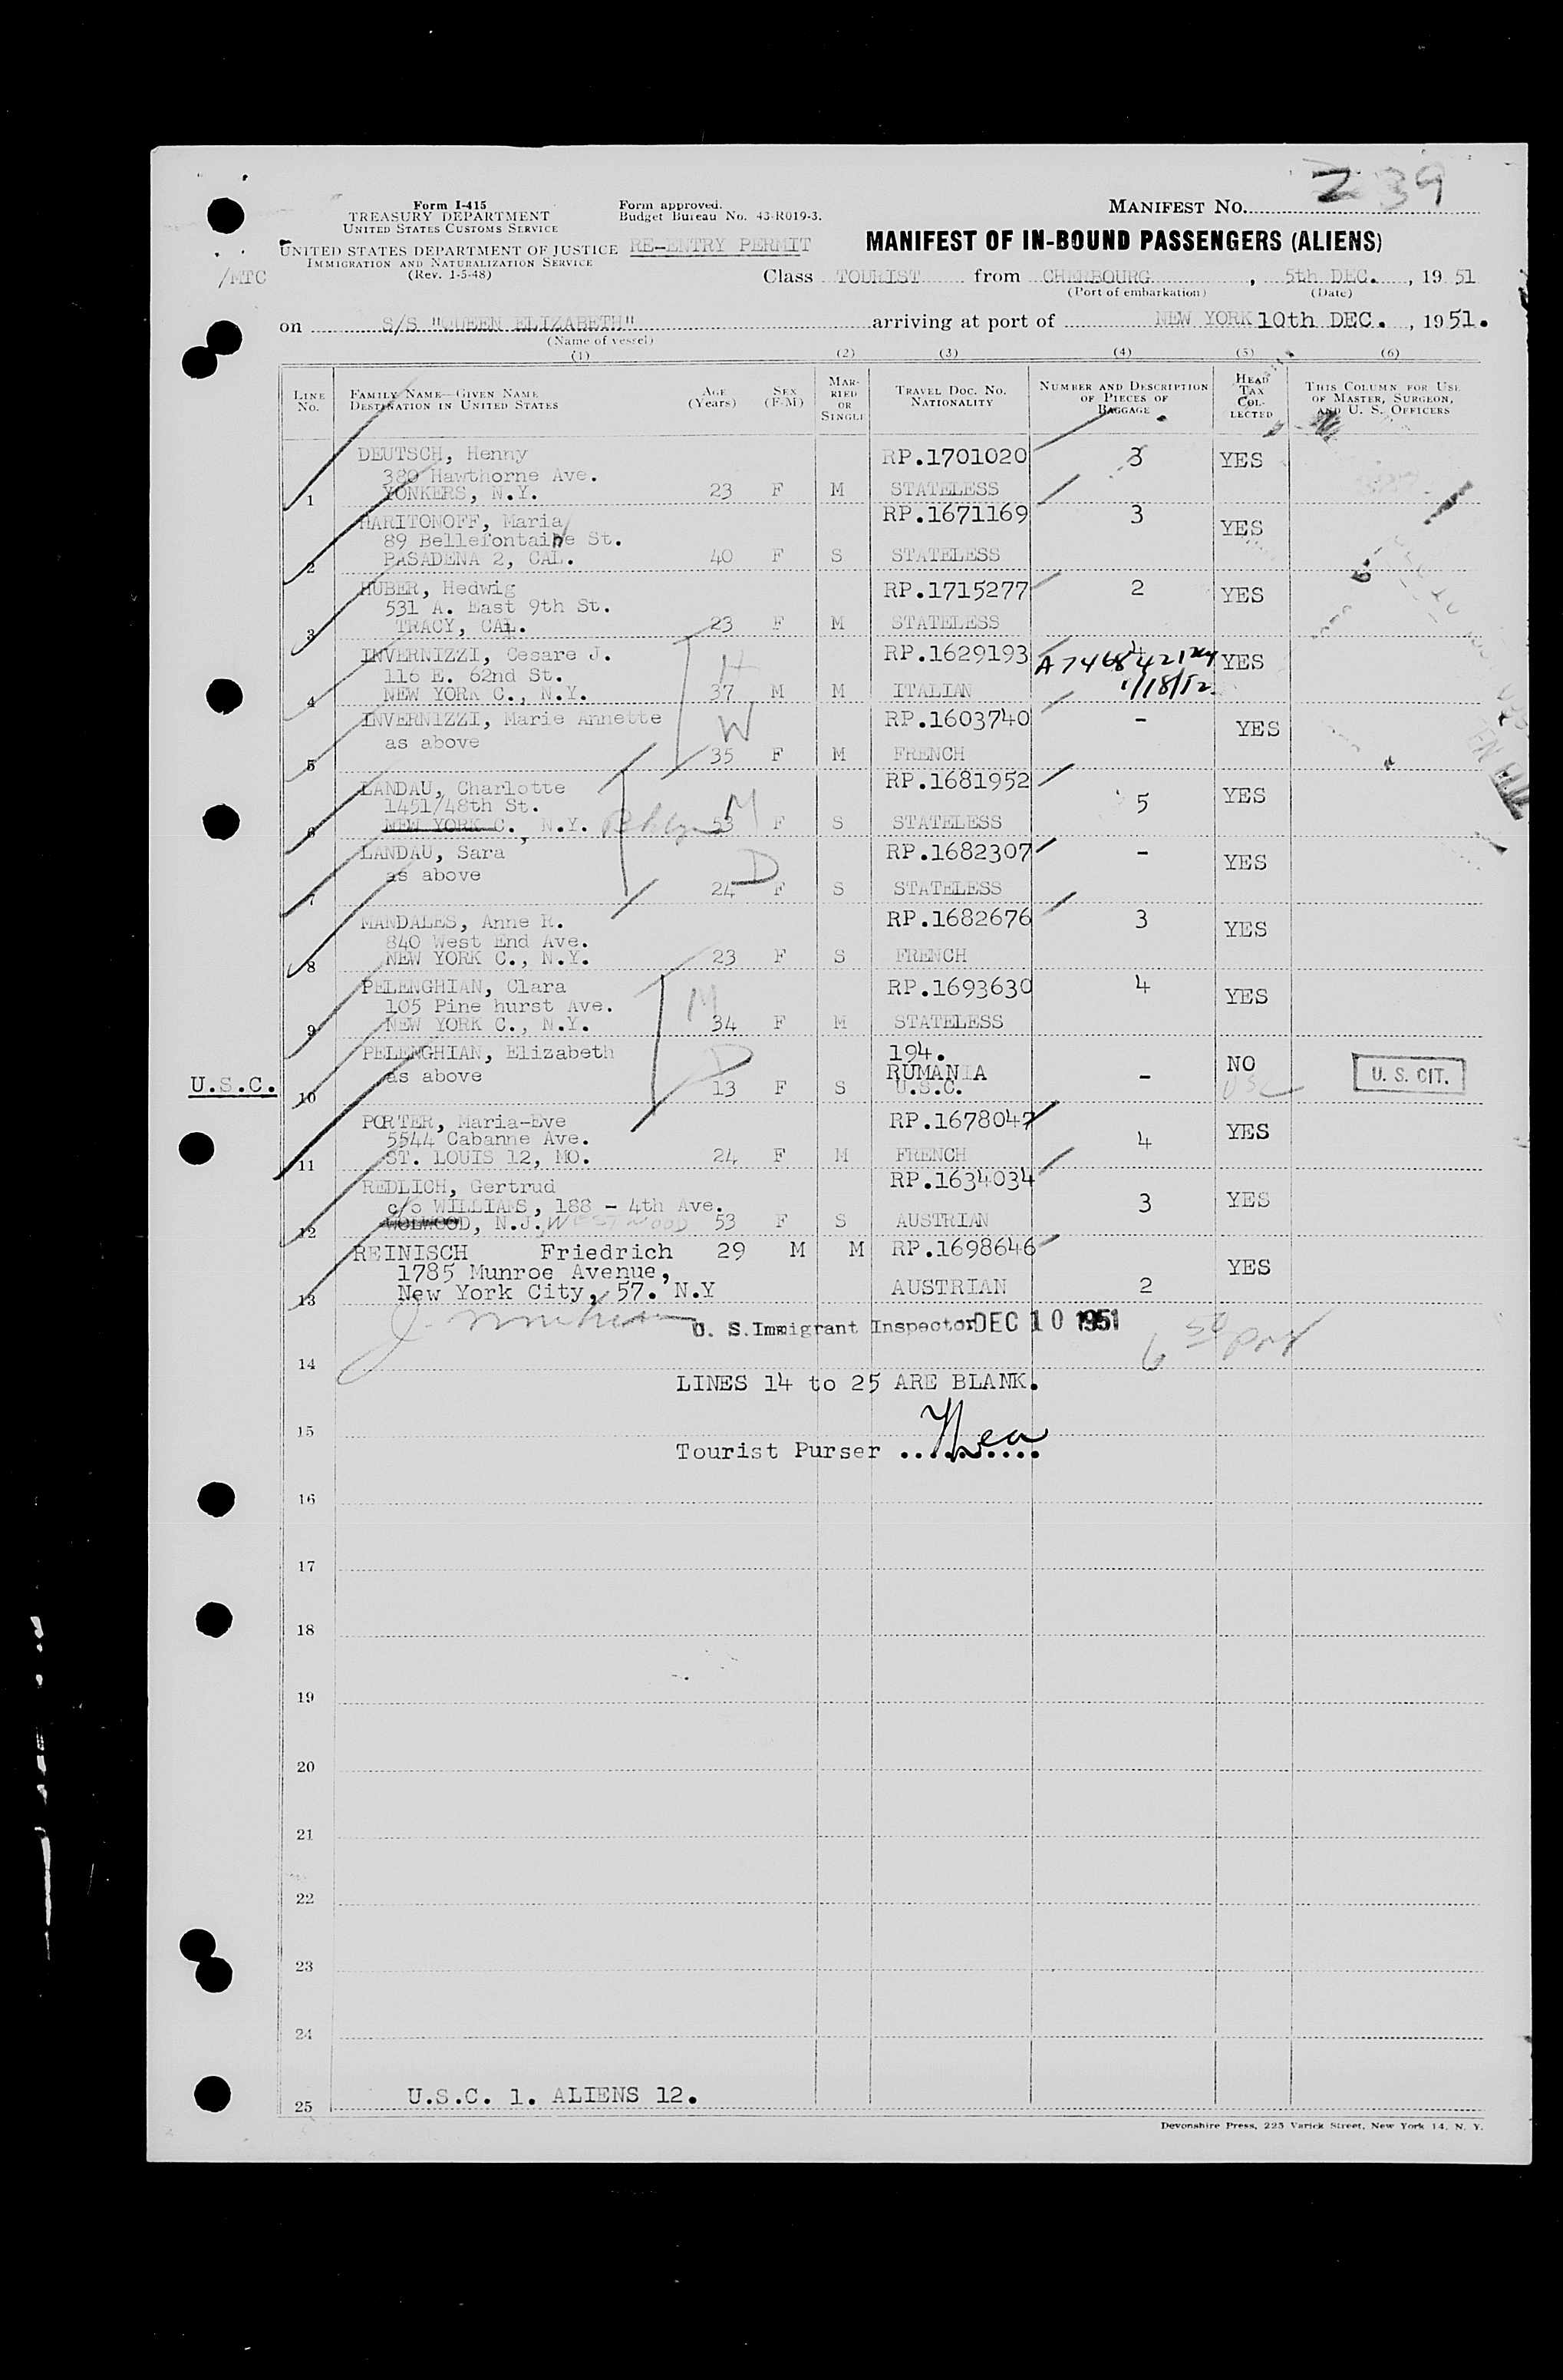 Z 39
Form I-415
TREASURY DEPARTMENT
UNITED STATES CUSTOMS SERVICE
Form approved.
Budget Bureau No. 43-R019-3.
MANIFEST NO.
UNITED STATES DEPARTMENT OF JUSTICE
IMMIGRATION AND NATURALIZATION SERVICE
(Rev. 1-5-48)
/MTC
RE-ENTRY PERMIT
MANIFEST OF IN-BOUND PASSENGERS (ALIENS)
Class TOURIST from CHERBOURG, 5th DEC., 19 51
(Port of embarkation) (Date)
on S/S "QUEEN ELIZABETH" arriving at port of NEW YORK 10th DEC., 1951.
(Name of vessel)
(1) (2) (3) (4) (5) (6)
LINE NO.
FAMILY NAME—GIVEN NAME
DESTINATION IN UNITED STATES
AGE (Years)
SEX (F-M)
MARRIED OR SINGLE
TRAVEL DOC. NO. NATIONALITY
NUMBER AND DESCRIPTION OF PIECES OF BAGGAGE
HEAD TAX COLLECTED
THIS COLUMN FOR USE OF MASTER, SURGEON, AND U. S. OFFICERS
DEUTSCH, Henny RP.1701020 3 YES
380 Hawthorne Ave.
1 YONKERS, N.Y. 23 F M STATELESS
HARITONOFF, Maria RP.1671169 3 YES
89 Bellefontaine St.
2 PASADENA 2, CAL. 40 F S STATELESS
HUBER, Hedwig RP.1715277 2 YES
531 A. East 9th St.
3 TRACY, CAL. 23 F M STATELESS
INVERNIZZI, Cesare J. H RP.1629193 4 YES
116 E. 62nd St. A7468421
4 NEW YORK C., N.Y. 37 M M ITALIAN 1/18/52
INVERNIZZI, Marie Annette W RP.1603740 - YES
as above
5 35 F M FRENCH
LANDAU, Charlotte M RP.1681952 5 YES
1451/48th St.
6 NEW YORK C., N.Y. Bklyn 53 F S STATELESS
LANDAU, Sara D RP.1682307 - YES
as above
7 24 F S STATELESS
MANDALES, Anne R. RP.1682676 3 YES
840 West End Ave.
8 NEW YORK C., N.Y. 23 F S FRENCH
PELENGHIAN, Clara M RP.1693630 4 YES
105 Pine hurst Ave.
9 NEW YORK C., N.Y. 34 F M STATELESS
PELENGHIAN, Elizabeth D 194. NO
as above RUMANIA - U. S. CIT.
U.S.C. 10 13 F S U.S.C. USC
PORTER, Maria-Eve RP.1678047 4 YES
5544 Cabanne Ave.
11 ST. LOUIS 12, MO. 24 F M FRENCH
REDLICH, Gertrud RP.1634034 3 YES
c/o WILLIAMS, 188 - 4th Ave.
12 WOLWOOD, N.J. WESTWOOD 53 F S AUSTRIAN
REINISCH Friedrich 29 M M RP.1698646 YES
1785 Munroe Avenue,
13 New York City, 57. N.Y AUSTRIAN 2
U. S. Immigrant Inspector DEC 10 1951
14
LINES 14 to 25 ARE BLANK.
15
Tourist Purser ..........
16
17
18
19
20
21
22
23
24
25 U.S.C. 1. ALIENS 12.
Devonshire Press, 225 Varick Street, New York 14, N. Y.